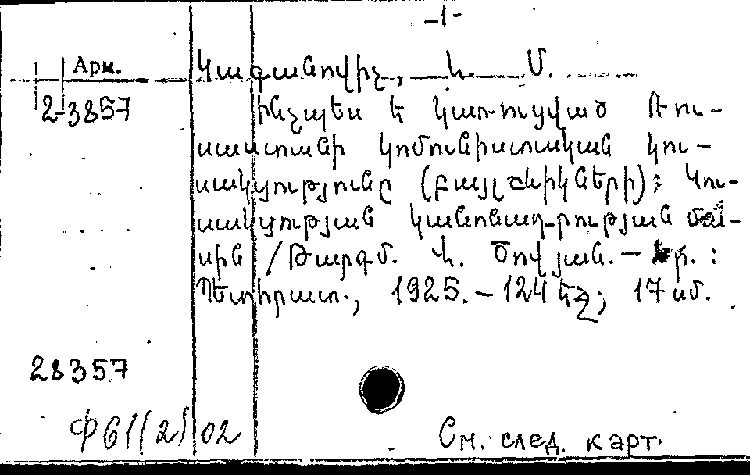 -1-
Арм.
2-3857
Կագանովիչ, Լ. Մ.
Ինչպես է կառուցված Ռու-
սաստանի կոմունիստական կու-
սակցությունը (բայլշևիկների): Կու-
սակցության կանոնադրության մա-
սին / Թարգմ. Հ. Ծովյան. – Եր. :
Պետհրատ., 1925. – 124 էջ; 17 սմ.
28357
Ф61(2)02
См. след. карт.